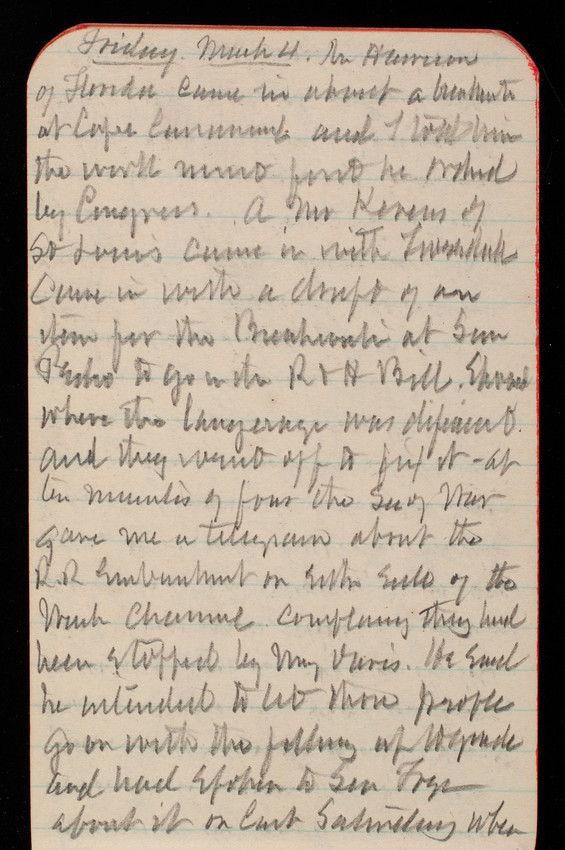 Friday March 4. Mr Harrison
of Florida came in about a breakwater
at Cape Canaveral and I told him
the work must first be ordered
by Congress. A Mr Kerens of
St Louis came in with
Came in with a draft of an
item for the Breakwater at San
Pedro to go in the R & H Bill. Showed
where the language was deficient.
and they went off to fix it - at
ten minutes of four the Sec of War
gave me a telegram about the
R.R Embankment on Side of the
Channel complaining they had
been stopped by Maj Davis. He said
he intended to let those people
go on with the filling up to grade
and had spoken to Sen Frye
about it on last Saturday when